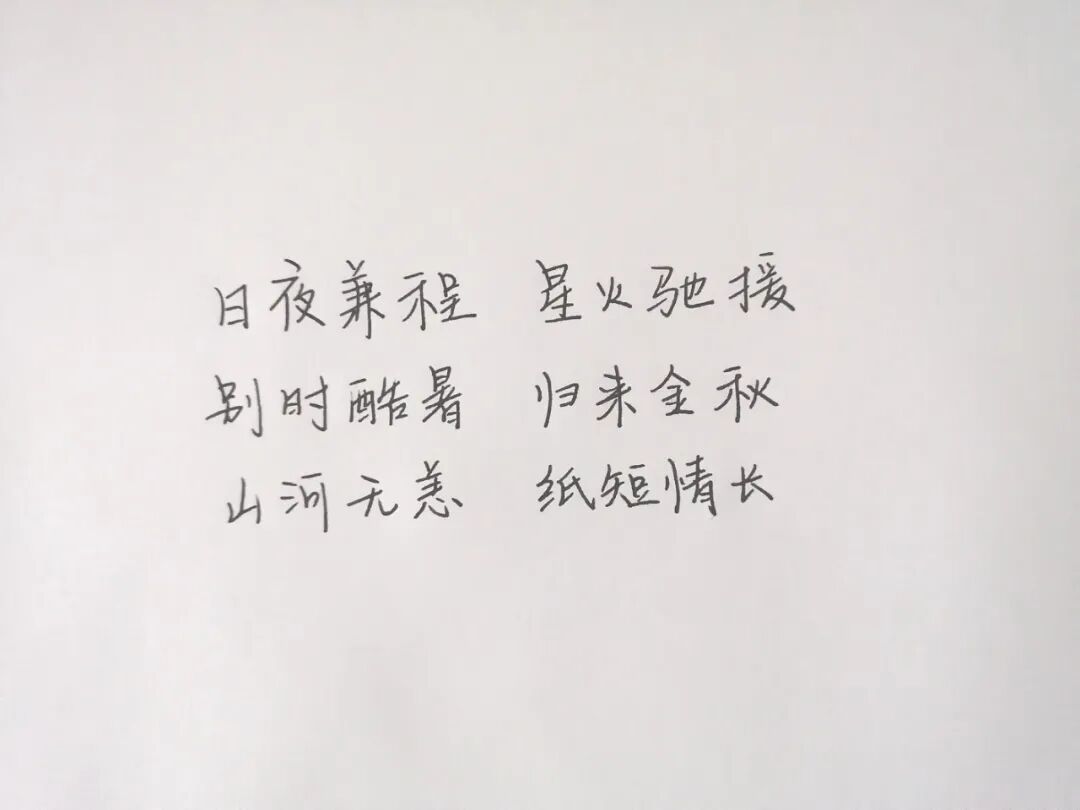 日夜兼程 星火驰援
别时酷暑 归来金秋
山河无恙 纸短情长